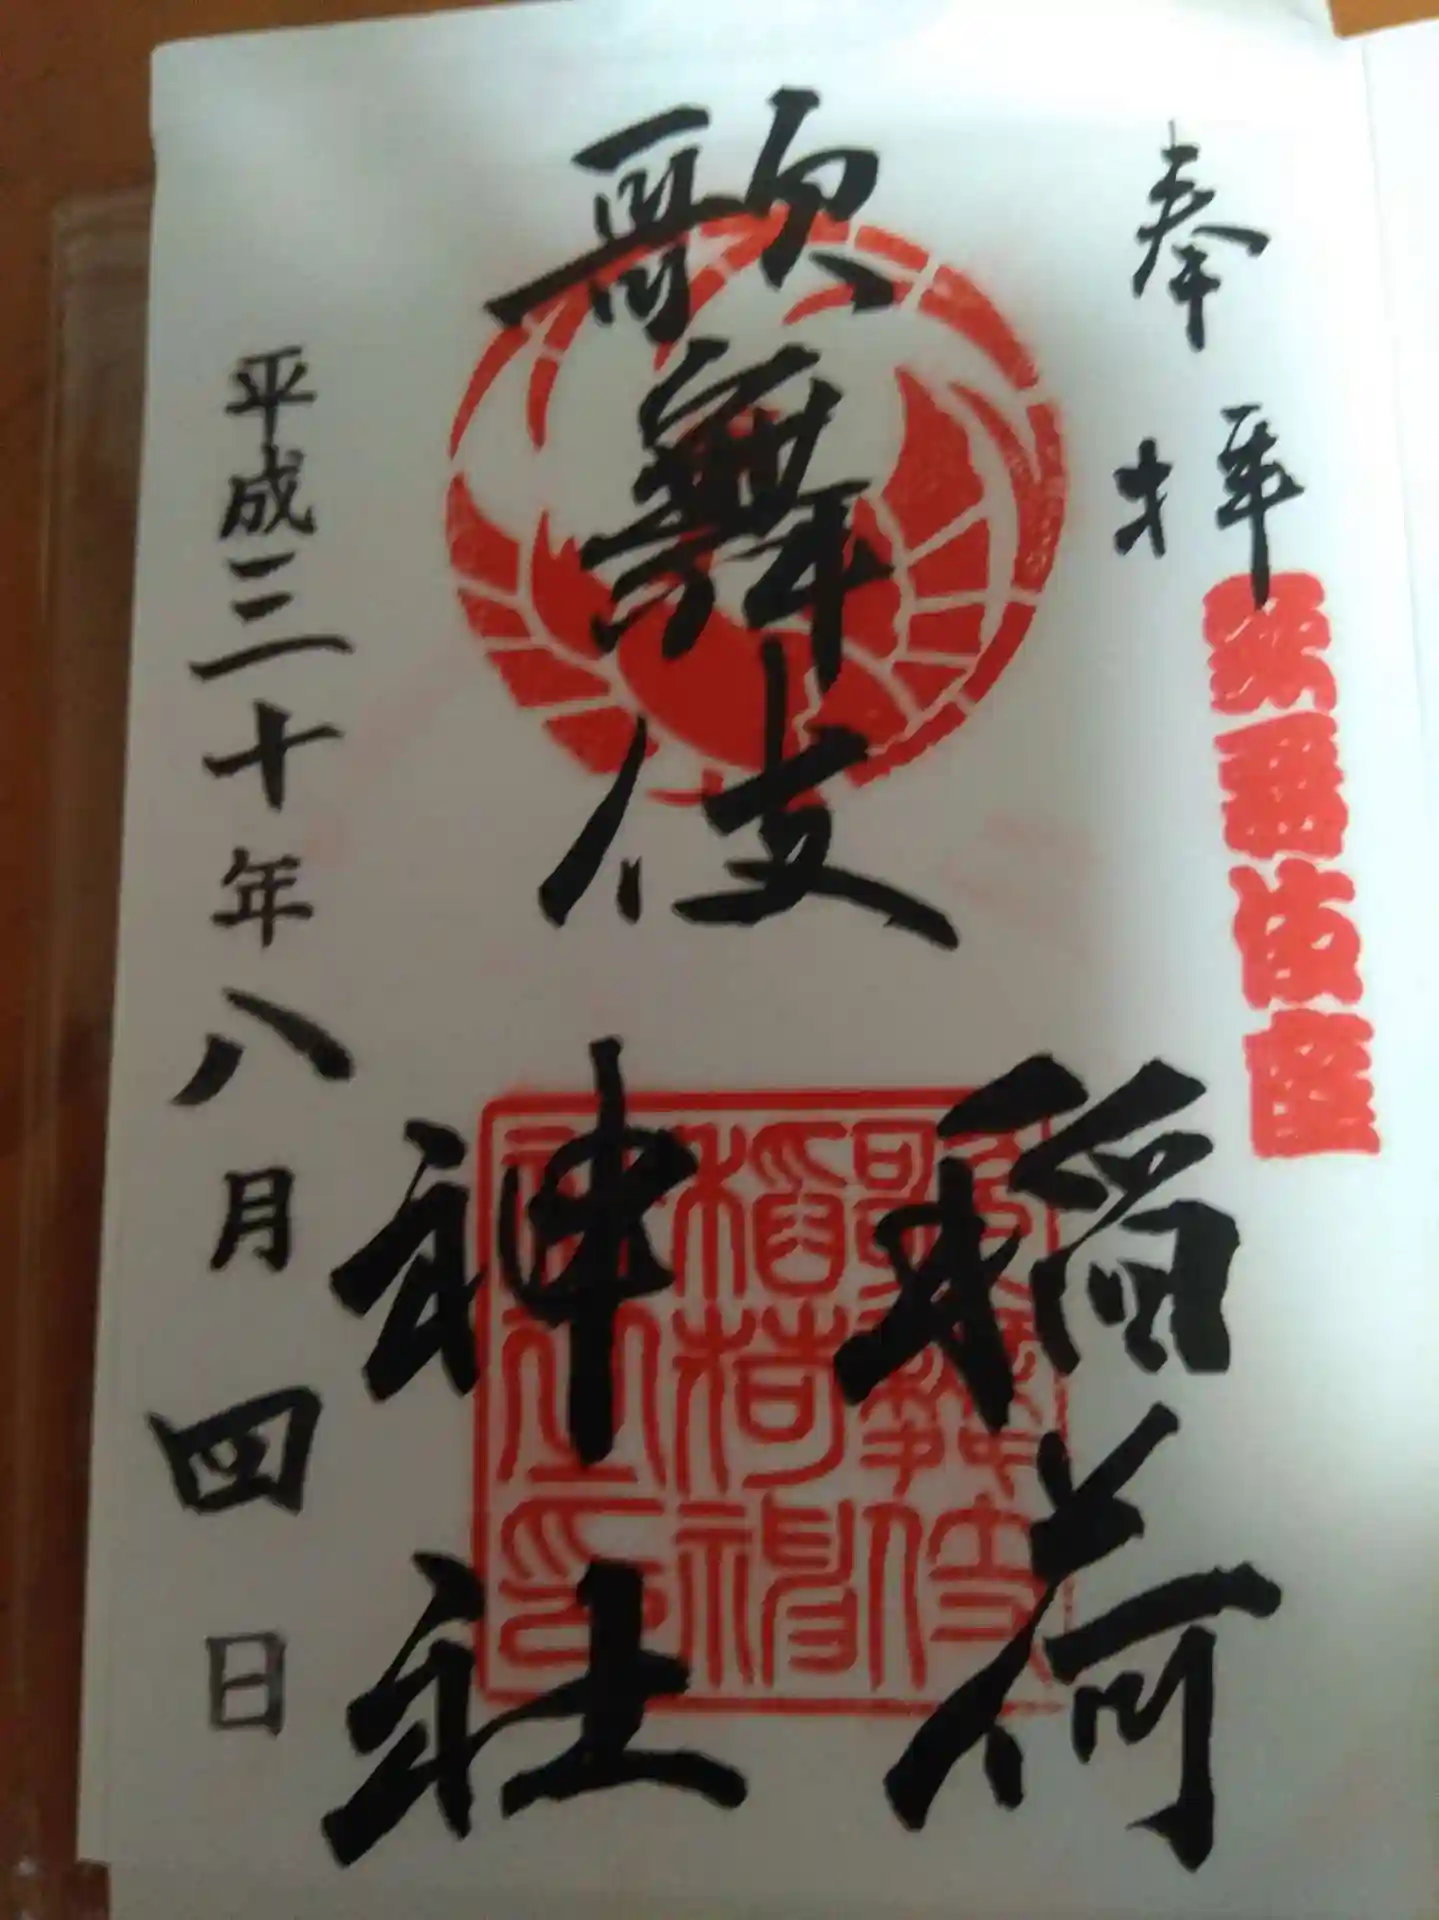 奉拝
歌舞伎座
歌舞伎
稲荷
神社
歌舞伎
稲荷神
社之印
平成三十年八月四日